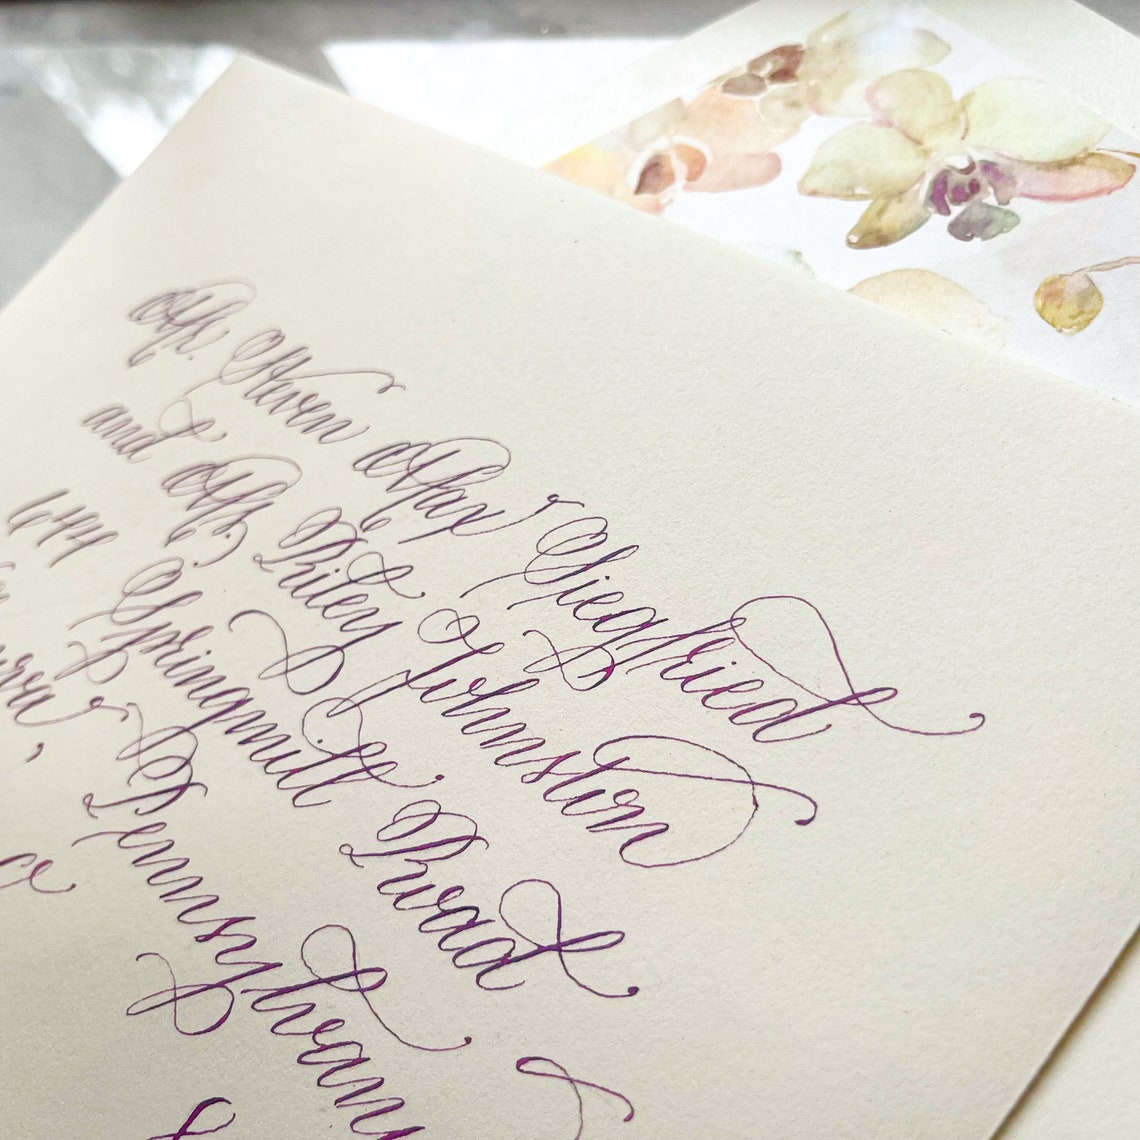 Mr. Steven Max Siegfried
and Mr. Riley Johnston
644 Springmill Road
Pennsylvan